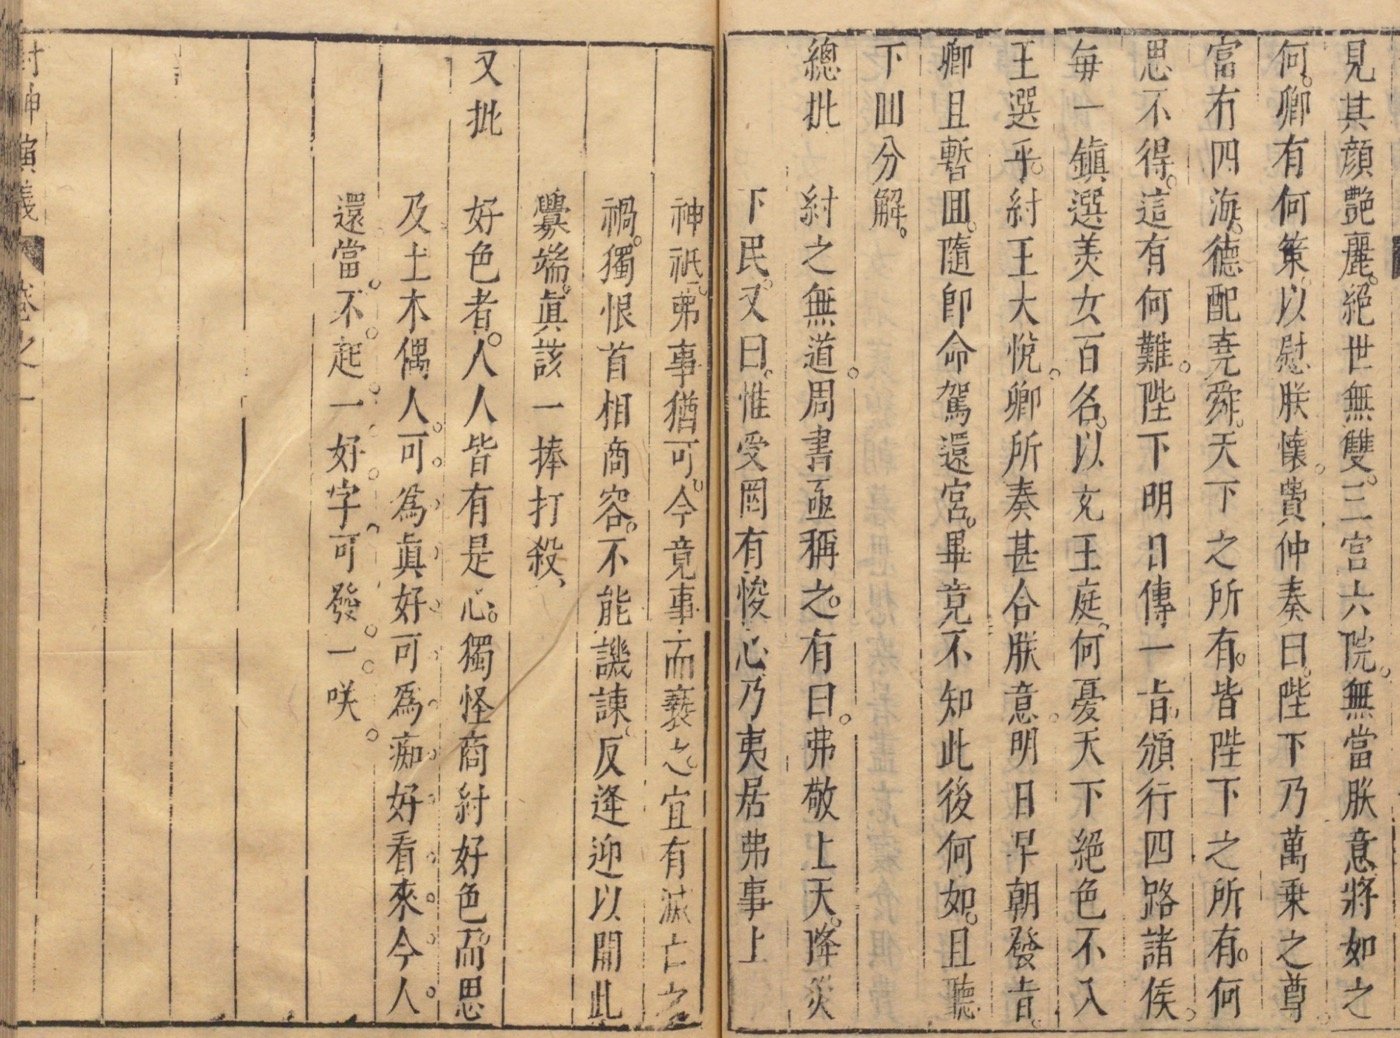 見其顔艷麗。絕世無雙。三宫六院。無當朕意將如之
何。卿有何策以慰朕懷。費仲奏曰。陛下乃萬乗之尊。
富有四海。德配堯舜。天下之所有。皆陛下之所有。何
思不得。這有何難。陛下明日傳一旨。頒行四路諸侯。
毎一鎮選美女百名。以充王庭。何憂天下絕色不入
王選乎。紂王大悅。卿所奏甚合朕意。明日早朝發旨。
卿且暫囬。隨卽命駕還宮。畢竟不知此後何如。且聽
下囬分解。
總批　紂之無道。周書亟稱之。有曰。弗敬上天。降災
下民。又曰。惟受罔有悛心乃夷居弗事上
神祇。弗事猶可。今竟事而褻之。宜有滅亡之
禍。獨恨首相商容。不能譏諫。反逢迎以開此
釁端。眞該一捧打殺、
又批　好色者。人人皆有是心。獨怪商紂好色。而思
及土木偶人。可。為眞好可爲痴好看來。今人。
還當。不。起。一好。字可發。一。咲。
封神演義　卷之一